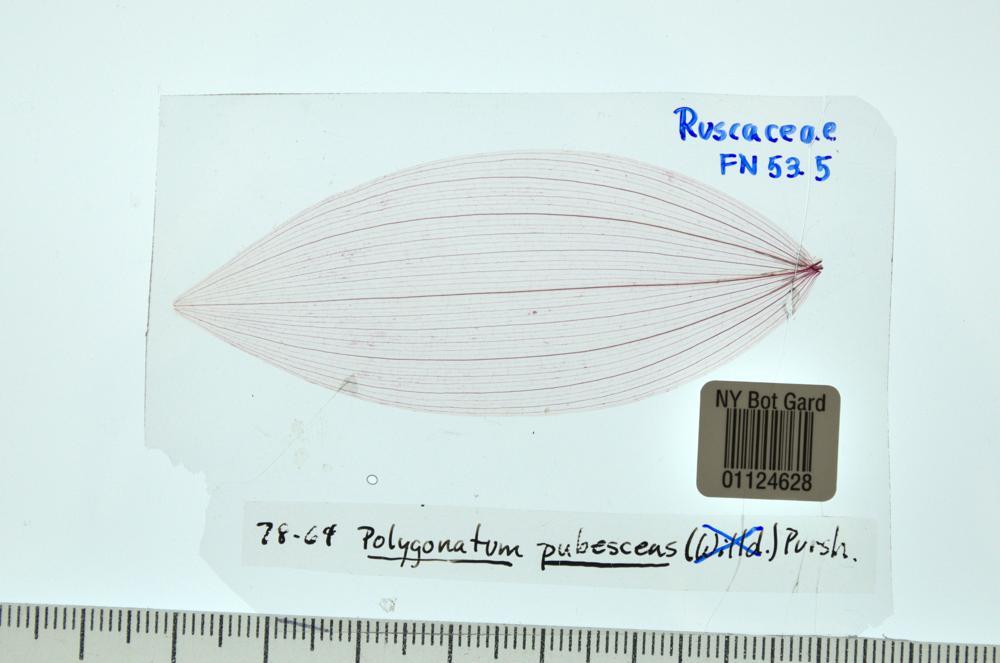 Ruscaceae
FN 535
NY Bot Gard
01124628
78-69 Polygonatum pubescens (Willd.) Pursh.